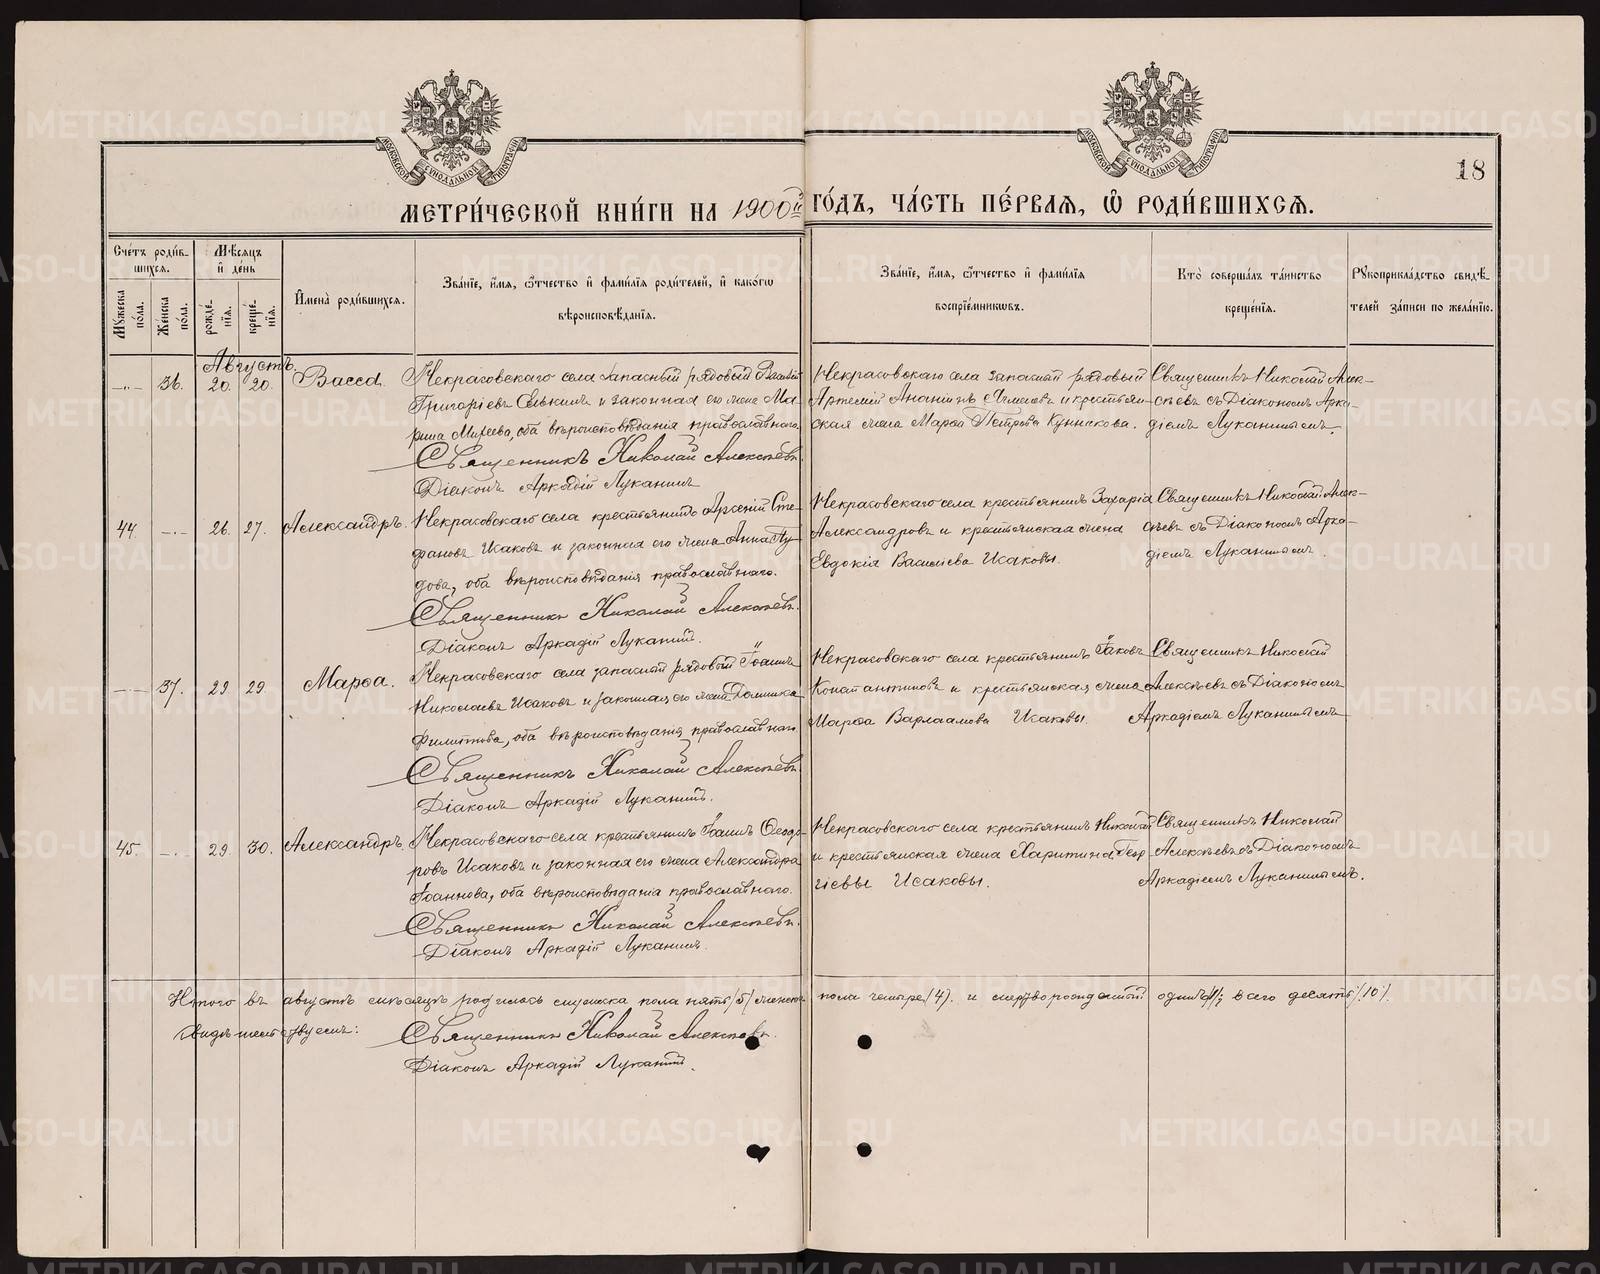 МОСКОВСКОЙ СѴНОДАЛЬНОЙ ТИПОГРАФІИ
МОСКОВСКОЙ СѴНОДАЛЬНОЙ ТИПОГРАФІИ
18
МЕТРИ́ЧЕСКОЙ КНИ́ГИ НА 1900й ГО́ДЪ, ЧА́СТЬ ПЕ́РВАЯ, Ѽ РОДИ́ВШИХСЯ.
Сче́тъ роди́в-
шихся.
Мѣ́сяцъ
и҆ де́нь
Мꙋ́жеска по́ла.
Же́нска по́ла.
рожде́-
нїя.
креще́-
нїя.
И҆мена̀ роди́вшихся.
Зва́нїе, и҆́мя, ѻ҆́тчество и҆ фами́лїя роди́телей, и҆ како́гѡ
вѣроисповѣ́данїя.
Зва́нїе, и҆́мя, ѻ҆́тчество и҆ фами́лїя
воспрїе́мникѡвъ.
Кто̀ соверша́лъ та́инство
креще́нїя.
Рꙋкоприкла́дство свидѣ́-
телей за́писи по жела́нїю.
Августъ.
—„— 36. 20. 20. Васса. Некрасовскаго села запасный рядовый Василій
Григоріевъ и законная его жена Ма-
рина Михеева, оба вѣроисповѣданія православнаго.
Священникъ Николай Алексѣевъ.
Діаконъ Аркадій Луканинъ
Некрасовскаго села запасный рядовый
Артемій Ананіинъ и крестьян-
ская жена Марѳа Петрова Кунникова.
Священникъ Николай Алек-
сѣевъ съ Діакономъ Арка-
діемъ Луканинымъ.
44. —„— 26. 27. Александръ. Некрасовскаго села крестьянинъ Арсеній Сте-
фановъ Исаковъ и законная его жена Анна Гу-
дова, оба вѣроисповѣданія православнаго.
Священникъ Николай Алексѣевъ.
Діаконъ Аркадій Луканинъ.
Некрасовскаго села крестьянинъ Захарія
Александровъ и крестьянская жена
Евдокія Василіева Исаковы.
Священникъ Николай Алек-
сѣевъ съ Діакономъ Арка-
діемъ Луканинымъ.
—„— 37. 29 29. Марѳа. Некрасовскаго села запасный рядовый Іоаннъ
Николаевъ Исаковъ и законная его жена Домника
Филиппова, оба вѣроисповѣданія православнаго.
Священникъ Николай Алексѣевъ.
Діаконъ Аркадій Луканинъ.
Некрасовскаго села крестьянинъ Іаковъ
Константиновъ и крестьянская жена
Марѳа Варлаамова Исаковы.
Священникъ Николай
Алексѣевъ съ Діакономъ
Аркадіемъ Луканинымъ
45. —„— 29. 30. Александръ. Некрасовскаго села крестьянинъ Іоаннъ Ѳеодо-
ровъ Исаковъ и законная его жена Александра
Іоаннова, оба вѣроисповѣданія православнаго.
Священникъ Николай Алексѣевъ.
Діаконъ Аркадій Луканинъ.
Некрасовскаго села крестьянинъ Николай
и крестьянская жена Харитина Геор-
гіевы Исаковы.
Священникъ Николай
Алексѣевъ съ Діакономъ
Аркадіемъ Луканинымъ.
Итого въ августѣ мѣсяцѣ родилось мужска пола пять /5/ женска пола четыре /4/. и мертворожденный одинъ /1/; всего десять /10/.
Свидѣтельствуемъ:
Священникъ Николай Алексѣевъ.
Діаконъ Аркадій Луканинъ.
METRIKI.GASO-URAL.RU